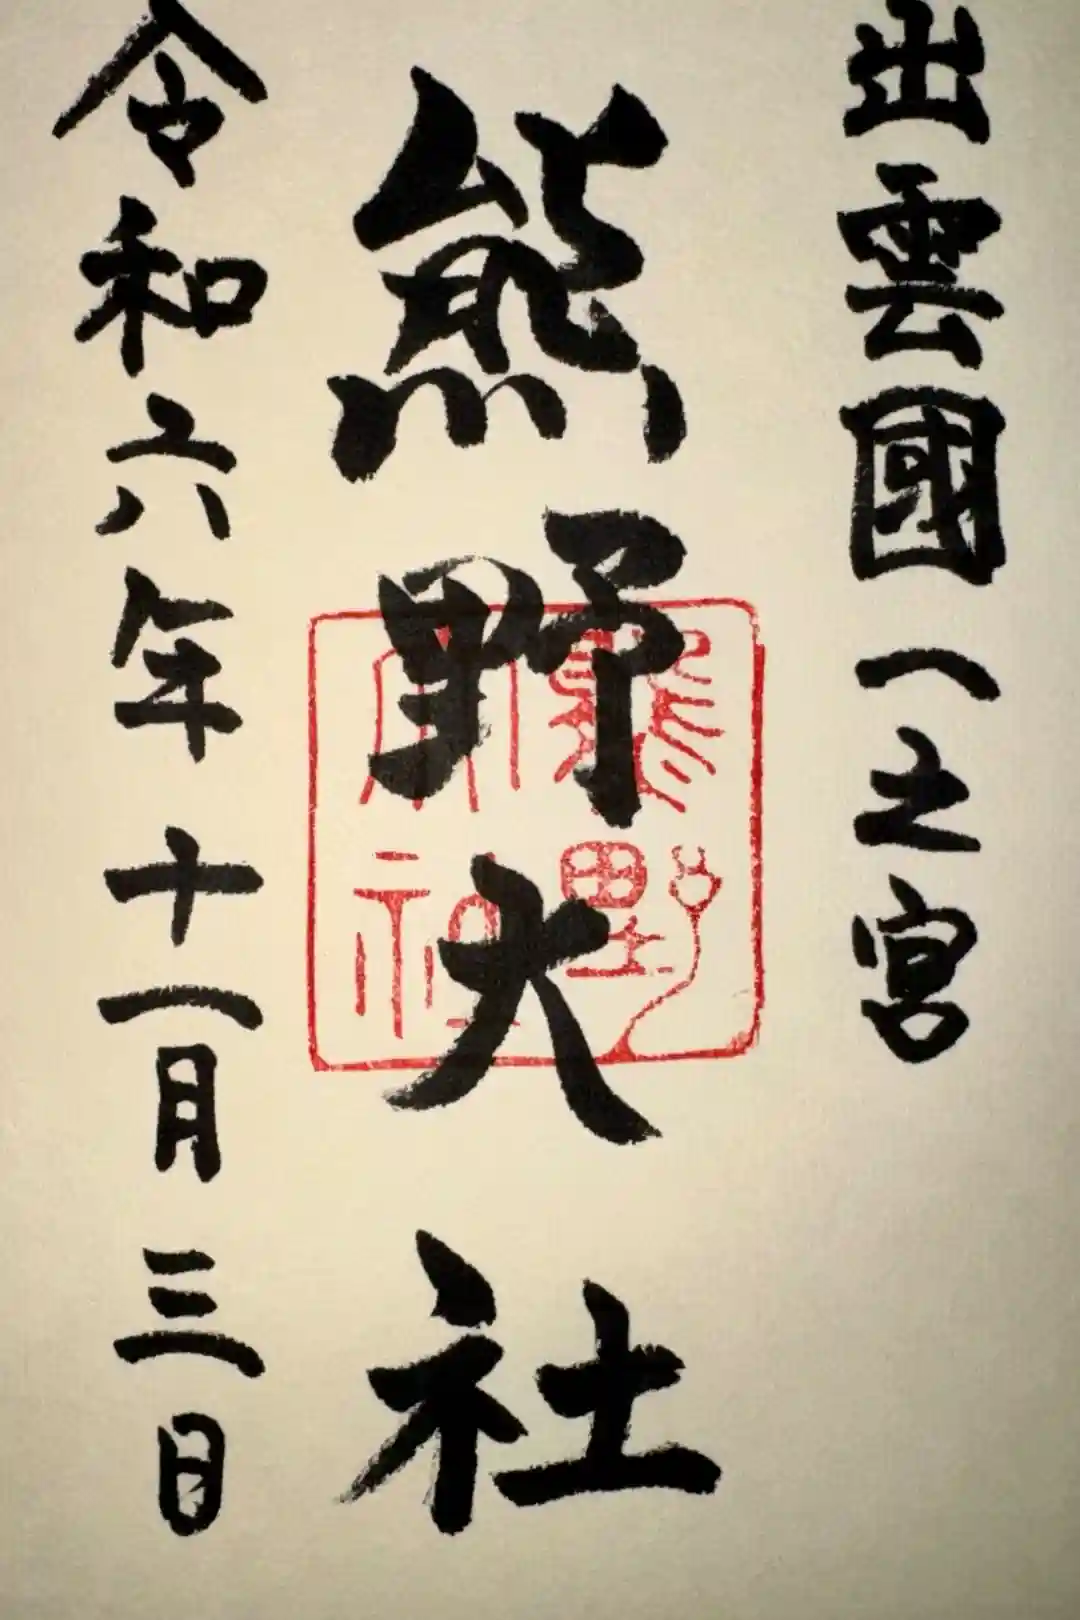 出雲國一之宮
熊野大社
熊野
大社
令和六年十一月三日